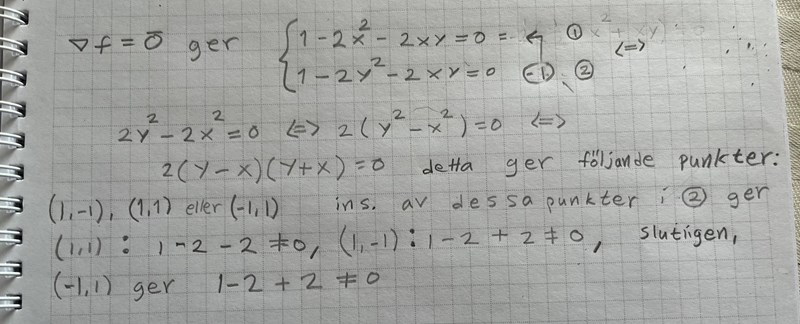 ∇f = 0̄ ger { 1 - 2x² - 2xy = 0 ①
1 - 2y² - 2xy = 0 (-1) ② <=>
2y² - 2x² = 0 <=> 2(y² - x²) = 0 <=>
2(y-x)(y+x) = 0 detta ger följande punkter:
(1,-1), (1,1) eller (-1,1) ins. av dessa punkter i ② ger
(1,1) : 1 - 2 - 2 ≠ 0, (1,-1) : 1 - 2 + 2 ≠ 0, slutligen,
(-1,1) ger 1 - 2 + 2 ≠ 0